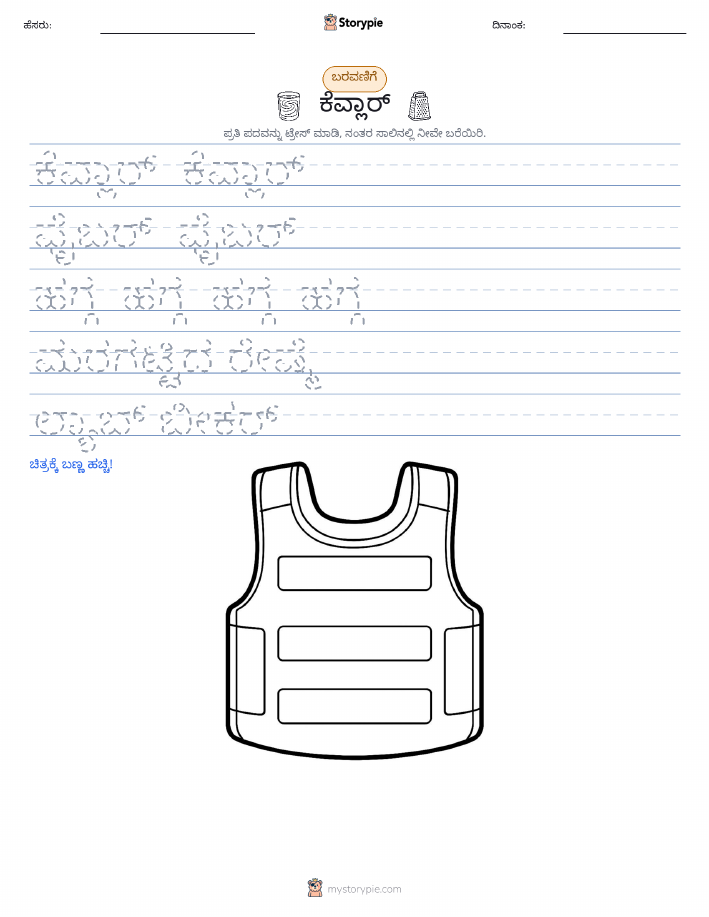 ಹೆಸರು:
Storypie
ದಿನಾಂಕ:
ಬರವಣಿಗೆ
ಕೆವ್ಲಾರ್
ಪ್ರತಿ ಪದವನ್ನು ಟ್ರೇಸ್ ಮಾಡಿ, ನಂತರ ಸಾಲಿನಲ್ಲಿ ನೀವೇ ಬರೆಯಿರಿ.
ಕೆವ್ಲಾರ್ ಕೆವ್ಲಾರ್
ಫೈಬರ್ ಫೈಬರ್
ಹಗ್ಗ ಹಗ್ಗ ಹಗ್ಗ ಹಗ್ಗ
ಲ್ಯಾಬ್ ಬೀಕರ್
ಚಿತ್ರಕ್ಕೆ ಬಣ್ಣ ಹಚ್ಚಿ!
mystorypie.com